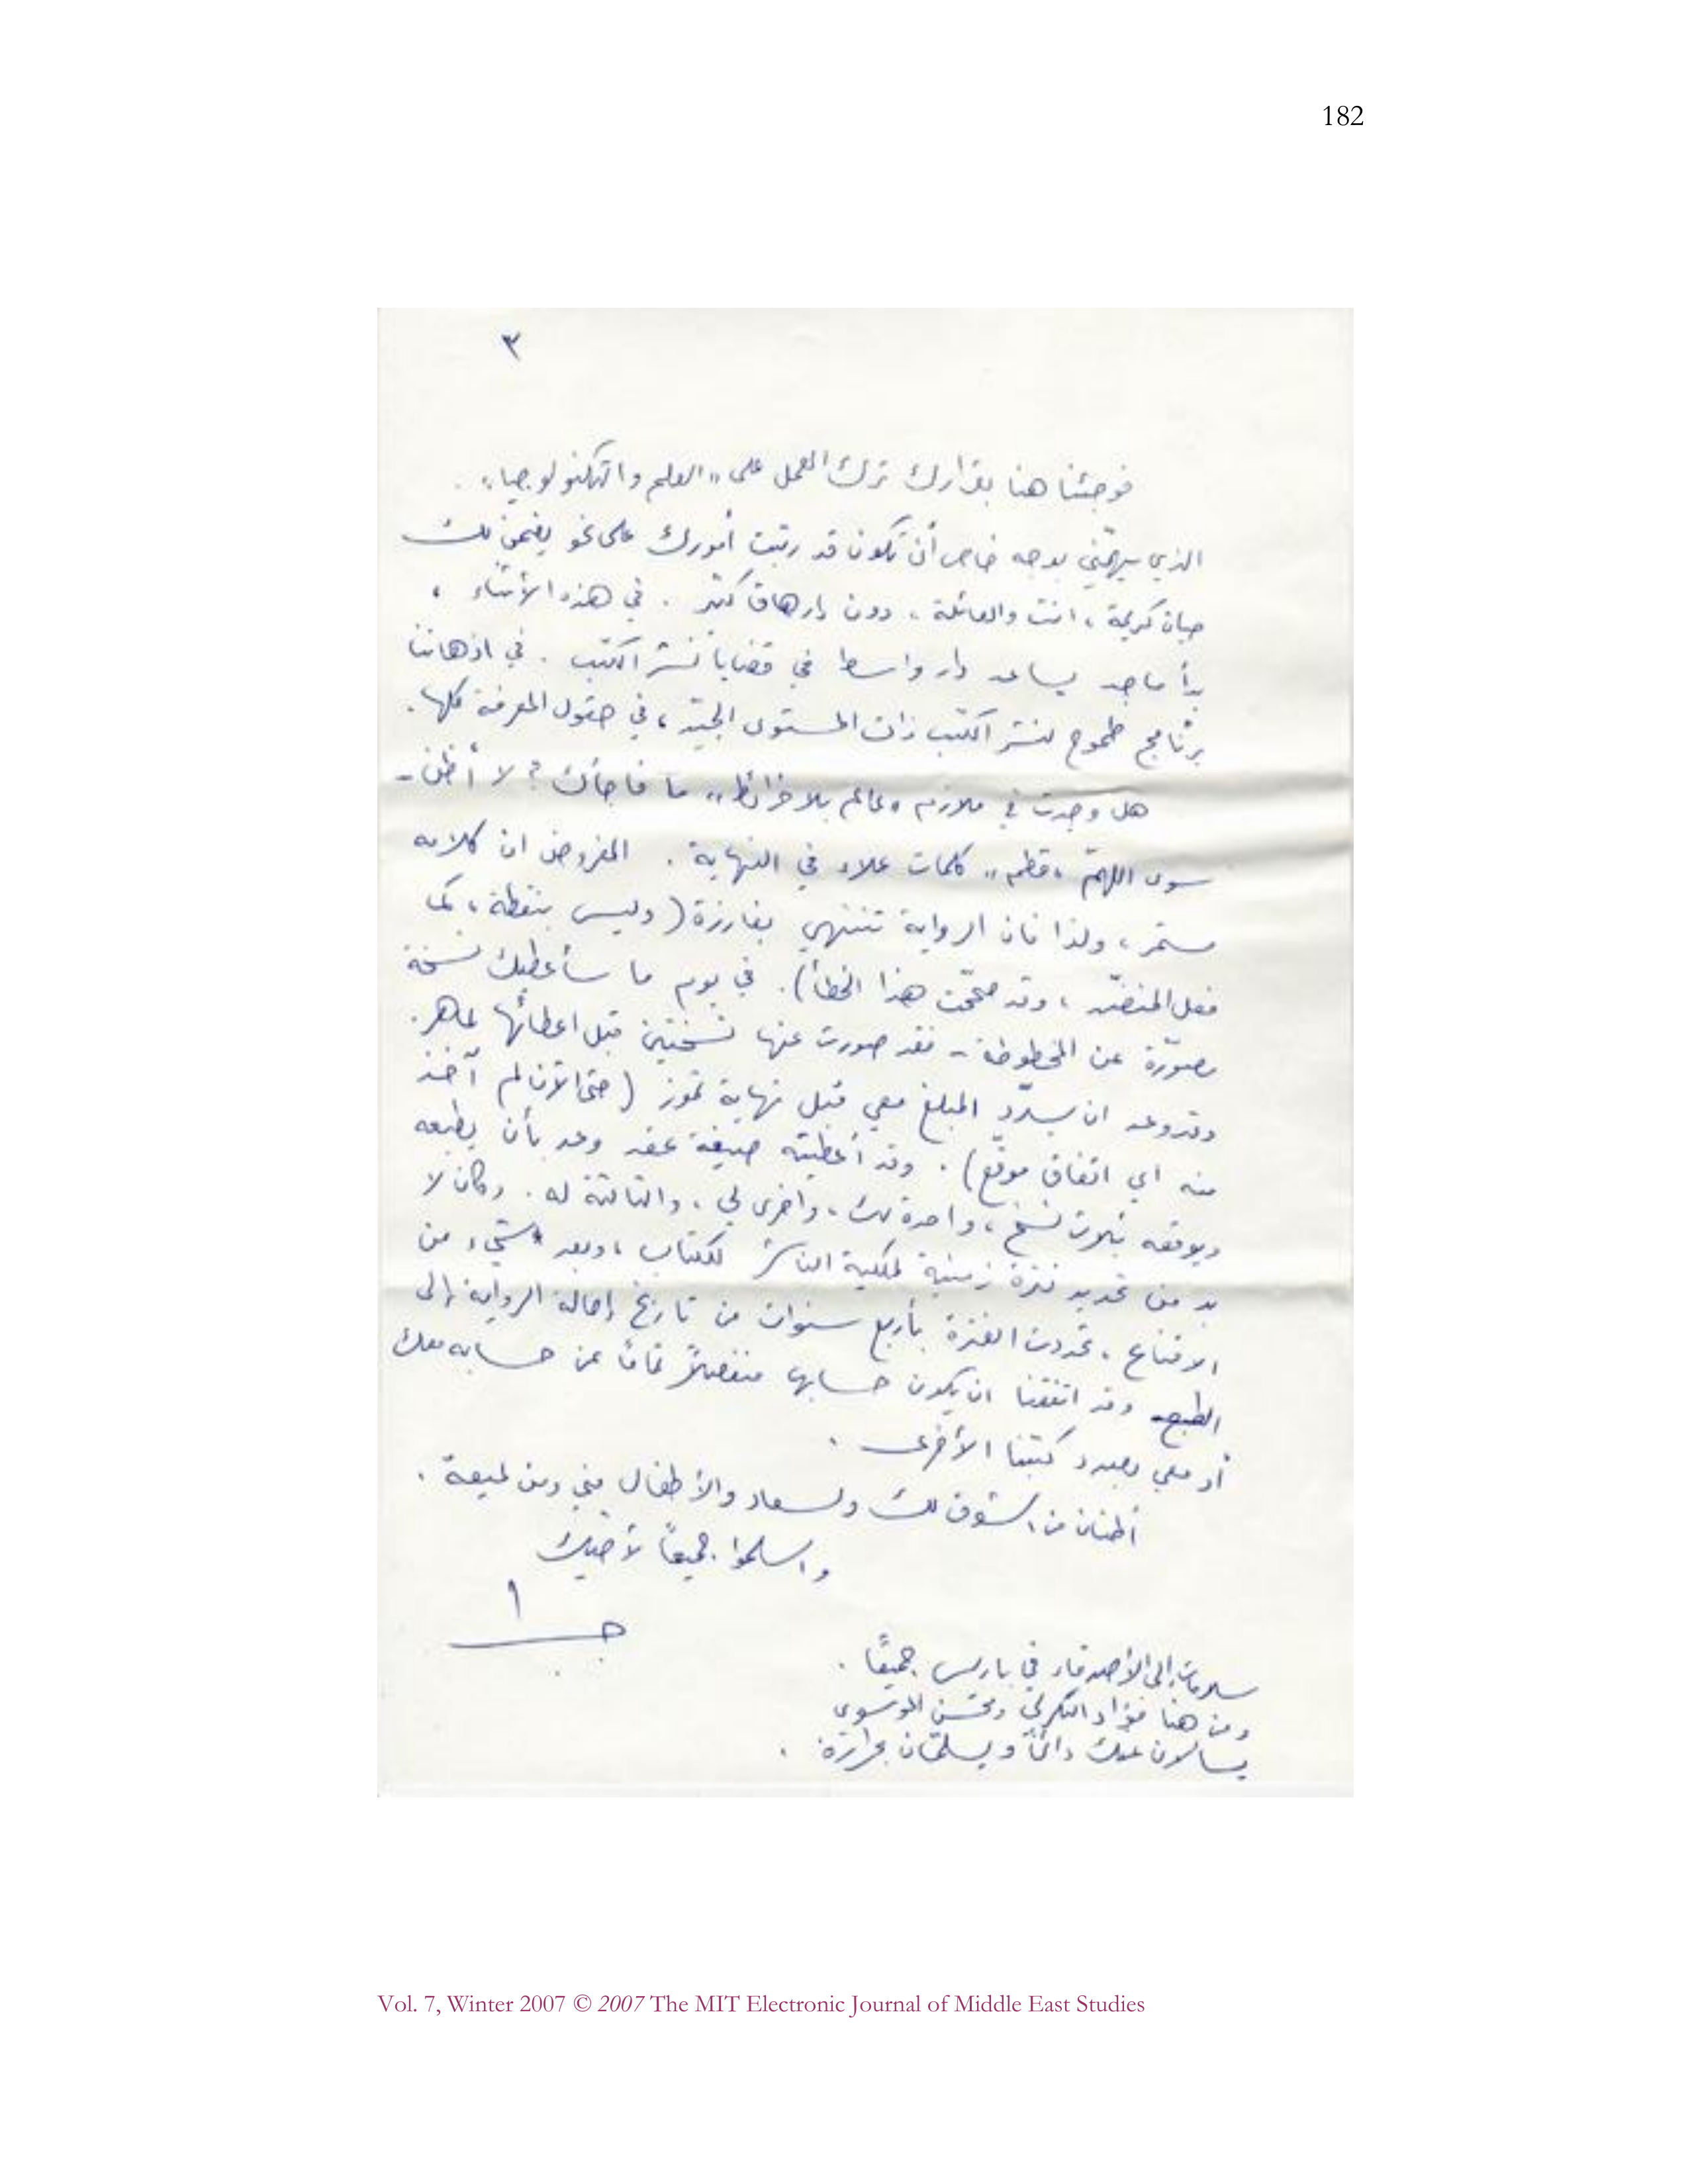 182
٣
فوجئنا هنا بقرارك ترك العمل على "العلم والتكنولوجيا".
الذي يهمّني بوجه خاص أن تكون قد رتبت أمورك على نحو يضمن لك
حياة كريمة، انت والعائلة، دون إرهاق كثير. في هذه الأثناء،
بدأ ماجد يساعد دار واسط في قضايا نشر الكتب. في اذهاننا
برنامج طموح لنشر الكتب ذات المستوى الجيّد، في حقول المعرفة كلها.
هل وجدت في ملازم "عالم بلا خرائط" ما فاجأك؟ لا أظن -
سوى اللهمّ "قطع" كلمات علاء في النهاية. المفروض ان كلامه
مستمر، ولذا فان الرواية تنتهي بفارزة (وليس بنقطة، كما
فعل المنضّد، وقد صححت هذا الخطأ). في يوم ما سأعطيك نسخة
مصوّرة عن المخطوطة - فقد صورت عنها نسختين قبل اعطائها لماهر.
وقد وعد ان يسدّد المبلغ معي قبل نهاية تموز (حتى الآن لم آخذ
منه اي اتفاق موقّع). وقد أعطيته صيغة عقد وعد بأن يطبعه
ويوقعه بثلاث نسخ، واحدة لك، واخرى لي، والثالثة له. وكان لا
بد من تحديد فترة زمنية لملكية الناشر للكتاب، وبعد شيء من
الاقناع، تحددت الفترة بأربع سنوات من تاريخ إحالة الرواية إلى
الطبع. وقد اتفقنا ان يكون حسابها منفصلاً تماماً عن حسابه معك
أو معي بصدد كتبنا الأخرى.
أطنان من الشوق لك ولسعاد والأطفال مني ومن لميعة.
واسلموا جميعاً لأخيك
جـــــا
سلامات إلى الأصدقاء في باريس جميعاً.
ومن هنا فؤاد التكرلي ومحسن الموسوي
يسألون عنك دائماً ويسلّمان بحرارة.
Vol. 7, Winter 2007 © 2007 The MIT Electronic Journal of Middle East Studies